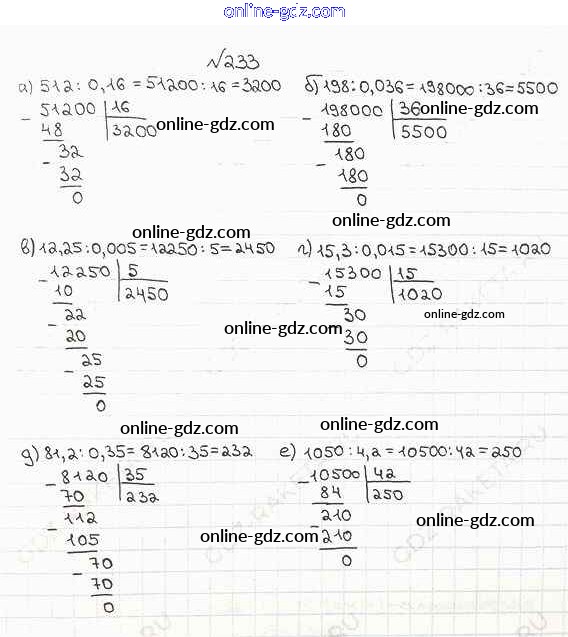 online-gdz.com
№233
а) 512 : 0,16 = 51200 : 16 = 3200
51200 | 16
- 48 | 3200
32
- 32
0
online-gdz.com
б) 198 : 0,036 = 198000 : 36 = 5500
198000 | 36
- 180 | 5500
180
- 180
0
online-gdz.com
online-gdz.com
online-gdz.com
в) 12,25 : 0,005 = 12250 : 5 = 2450
- 12250 | 5
10 | 2450
22
- 20
25
- 25
0
online-gdz.com
г) 15,3 : 0,015 = 15300 : 15 = 1020
- 15300 | 15
15 | 1020
30
- 30
0
online-gdz.com
online-gdz.com
online-gdz.com
д) 81,2 : 0,35 = 8120 : 35 = 232
- 8120 | 35
70 | 232
112
- 105
70
- 70
0
online-gdz.com
е) 1050 : 4,2 = 10500 : 42 = 250
- 10500 | 42
84 | 250
210
- 210
0
online-gdz.com